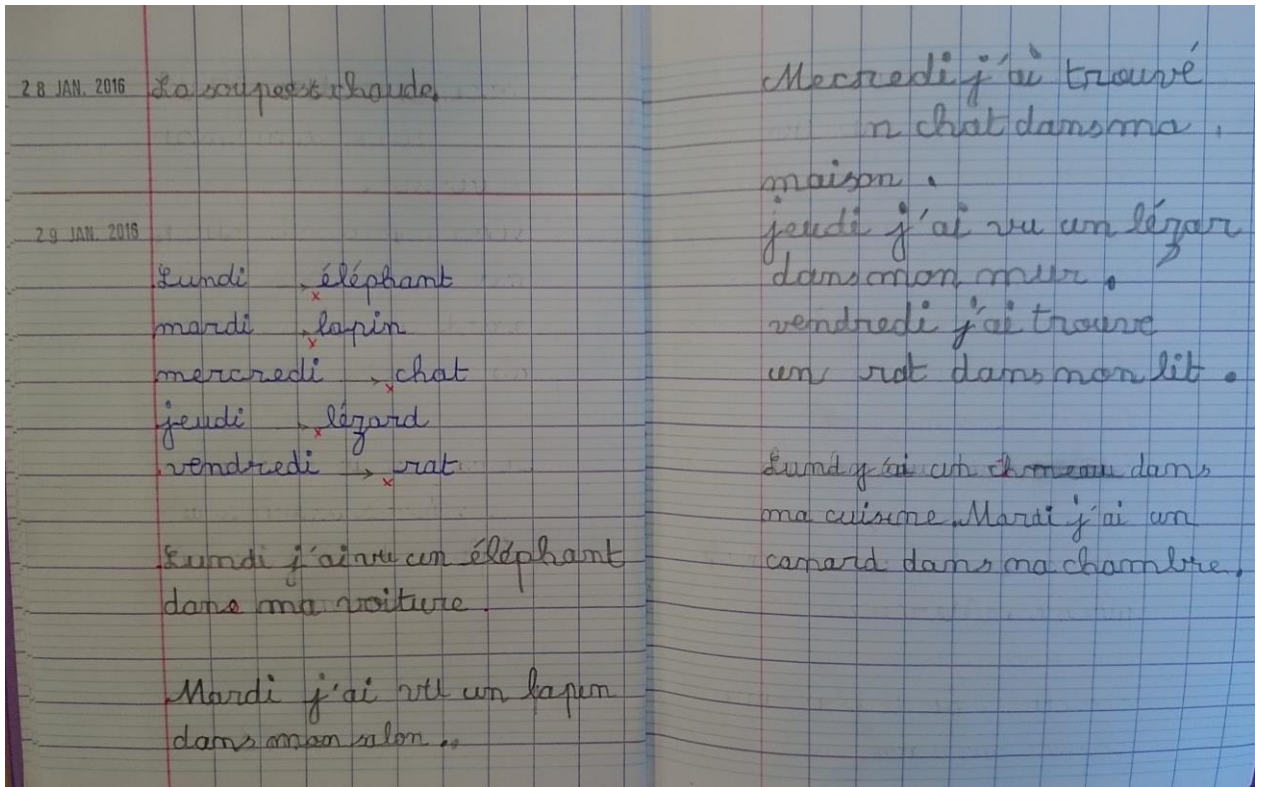 28 JAN. 2016 La soupe est chaude.
29 JAN. 2016
Lundi éléphant
mardi lapin
mercredi chat
jeudi lézard
vendredi → rat
Lundi j'ai vu un éléphant
dans ma voiture.
Mardi j'ai vu un lapin
dans mon salon..
Mecredi j'ai trouvé
n chat dans ma.
maison.
jeudi j'ai vu un lézar
dans mon mur.
vendredi j'ai trouve
un rat dans mon lit.
Lund j'ai un dans
ma cuisine. Mardi j'ai un
canard dans ma chambre.